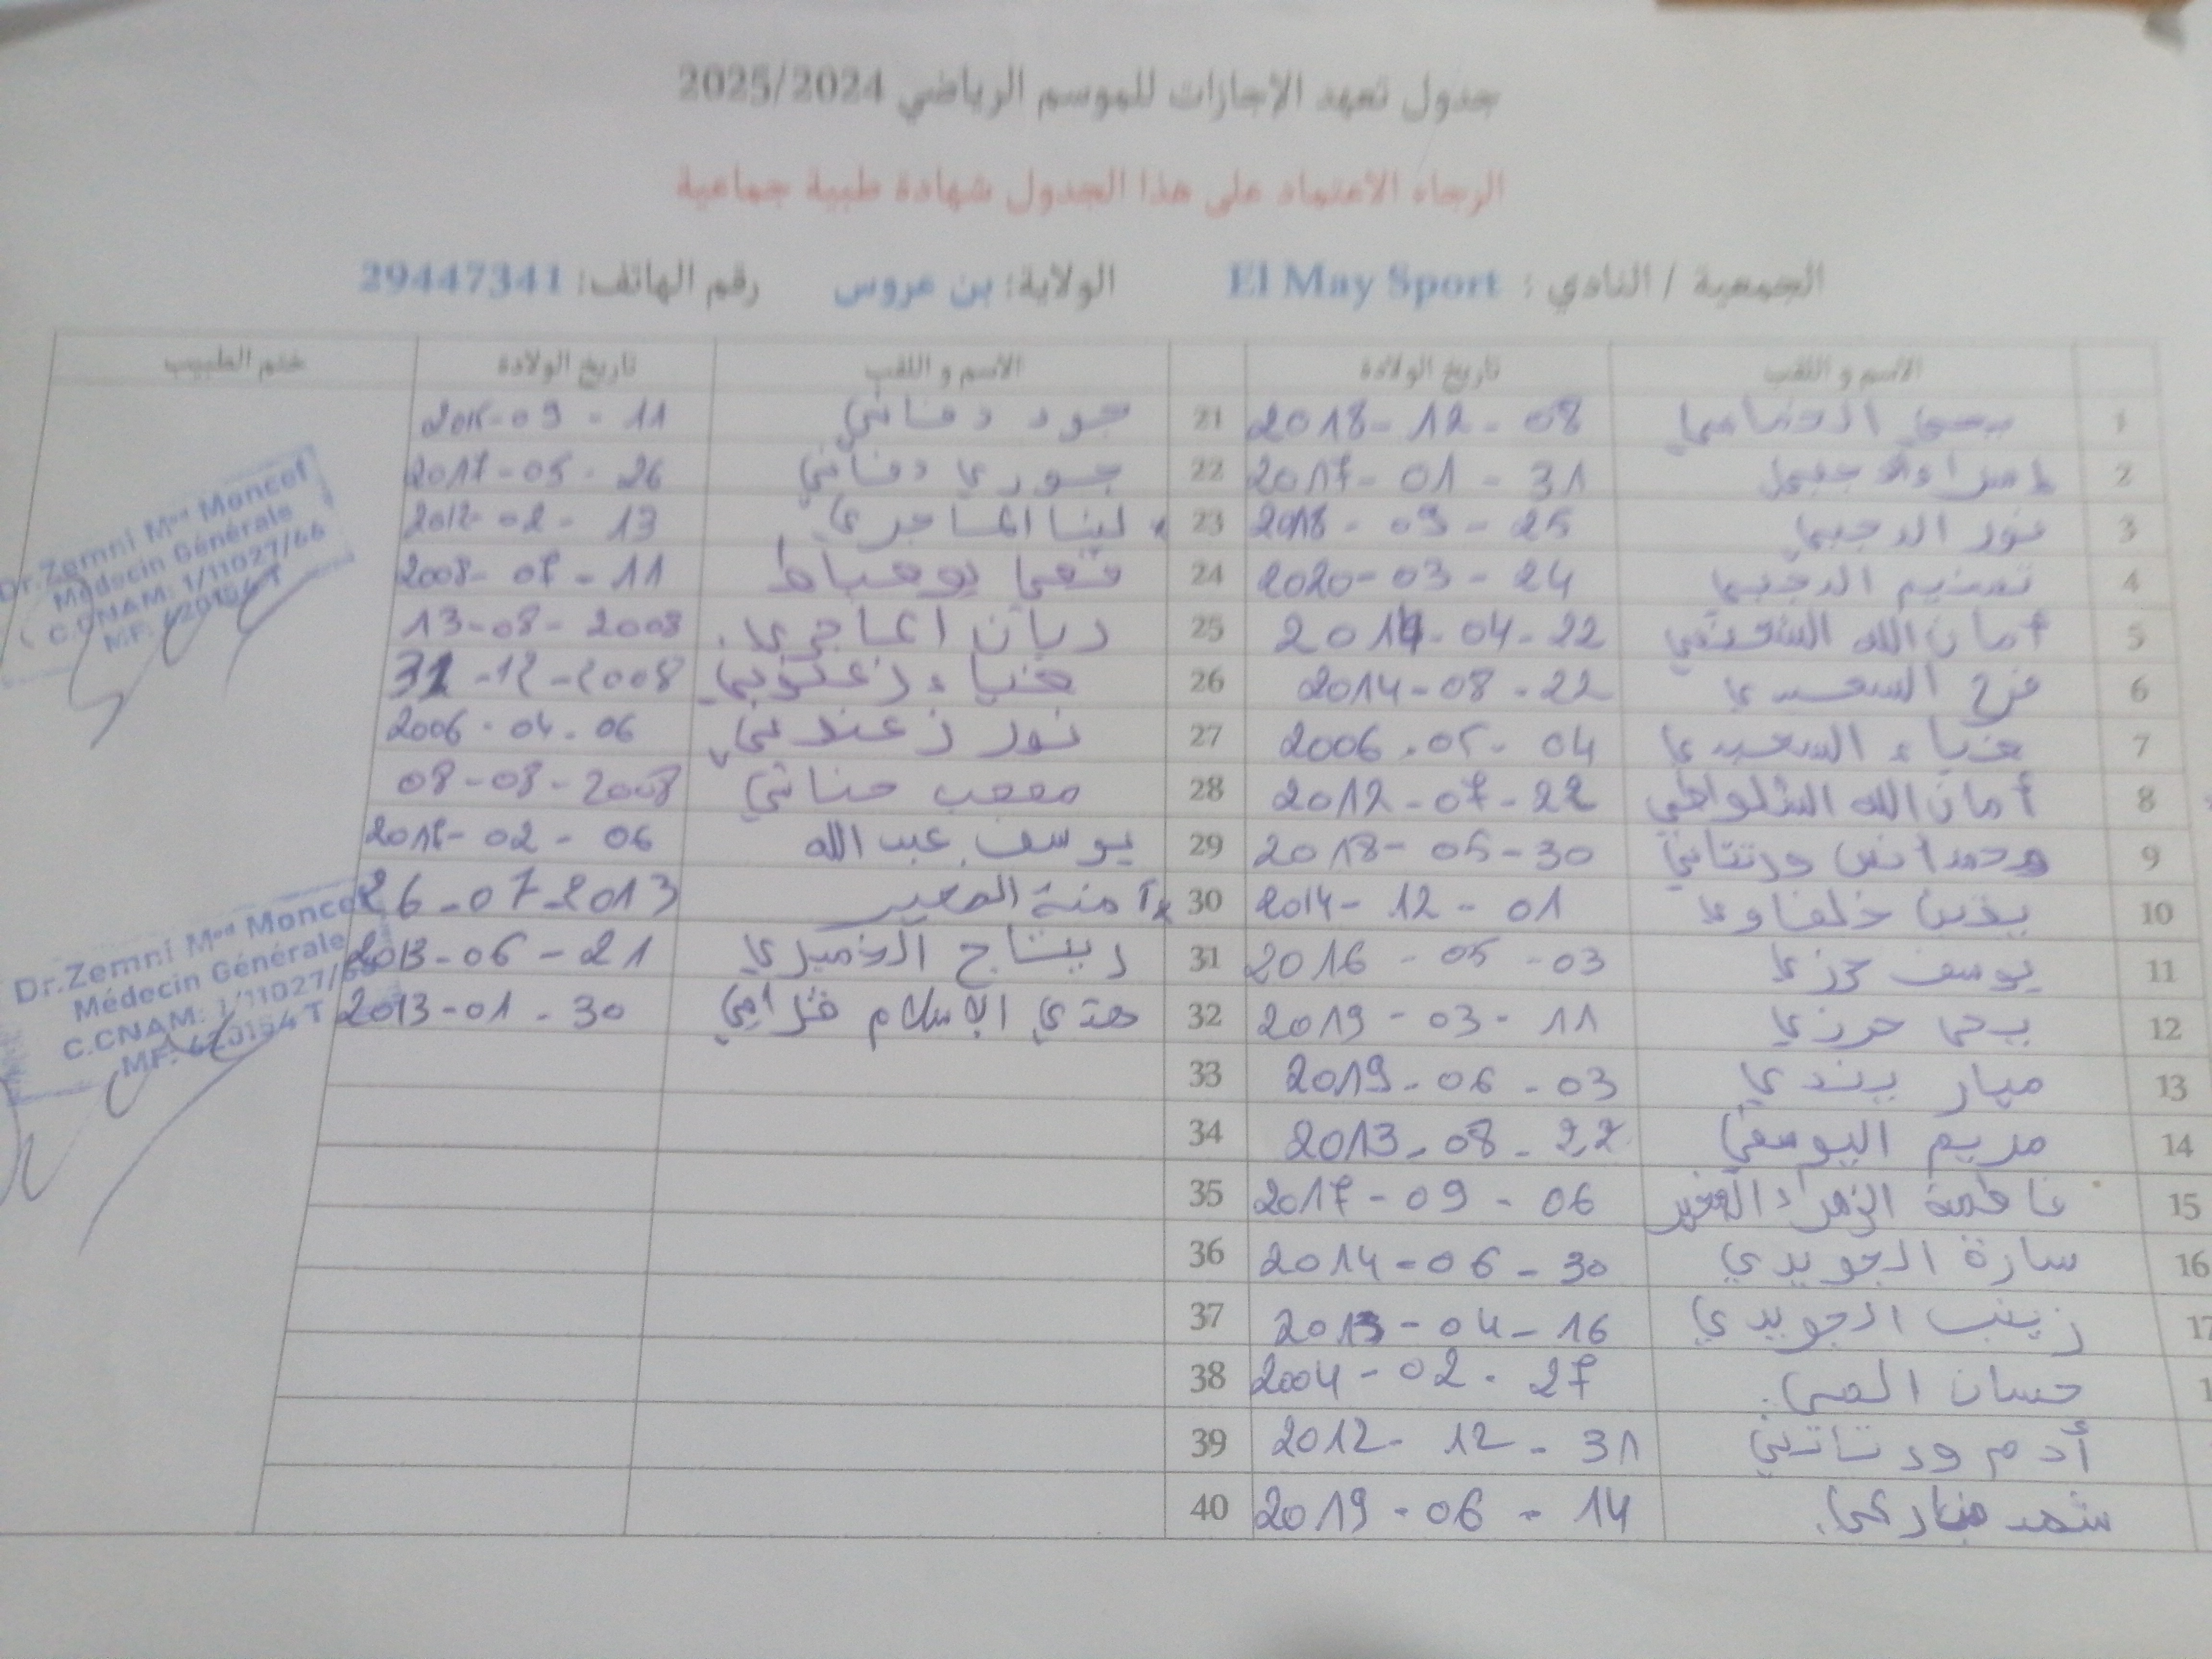 جدول تعهد الاجازات للموسم الرياضي 2025/2024
الرجاء الاعتماد على هذا الجدول شهادة طبية جماعية
الجمعية / النادي : El May Sport الولاية: بن عروس رقم الهاتف: 29447341
الاسم و اللقب تاريخ الولادة الاسم و اللقب تاريخ الولادة ختم الطبيب
1 2018-12-08 21 جود دفاتي 11 - 09
2 2017-01-31 22 جوري دفاتي 2017-05-26
3 نور الدجبي 2018-09-25 23 لينا الماجري 02-13
4 تسنيم الدجبي 2020-03-24 24 2008-07-11
5 أمان الله 04-22 25 ريان الماجري 13-08-2008
6 فرح السعيدي 2014-08-22 26 ضياء زغندبي 31-12-2008
7 ضياء السعيدي 2006-05-04 27 نور زغندبي 2006-04-06
8 أمان الله الشلواطي 2012-07-22 28 مصعب حناتي 08-08-2008
9 محمد أنس ورتتاني 2018-05-30 29 يوسف عبد الله 02-06
10 خلفاوي 2014-12-01 30 آمنة 26-07-2013
11 يوسف حرزي 2016-05-03 31 ريتاج الخميري 2013-06-21
12 يحي حرزي 2019-03-11 32 هدى الإسلام 2013-01-30
13 ميار 2019-06-03 33
14 مريم اليوسفي 2013-08-22 34
15 فاطمة الزهراء 2017-09-06 35
16 سارة الجويدي 2014-06-30 36
17 زينب الجويدي 04-16 37
حسان 2004-02-27 38
أدم ورتاتني 2012-12-31 39
شهد 2019-06-14 40
Dr.Zemni Med Moncef
Médecin Générale
C.CNAM: 1/11027/66
MF:
Dr.Zemni Med Moncef
Médecin Générale
C.CNAM: 1/11027/66
MF: